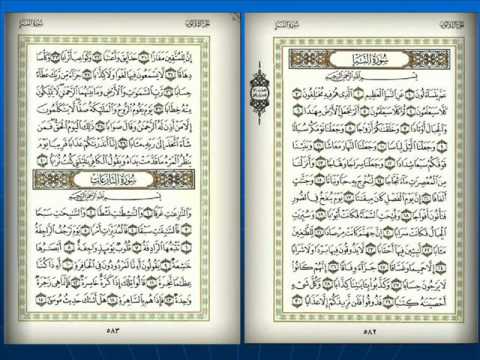 سُورَةُ النَّبَإِ
جُزْءُ الثَّلَاثُونَ
سُورَةُ النَّبَإِ
بِسْمِ اللَّهِ الرَّحْمَٰنِ الرَّحِيمِ
عَمَّ يَتَسَاءَلُونَ ١ عَنِ النَّبَإِ الْعَظِيمِ ٢ الَّذِي هُمْ فِيهِ مُخْتَلِفُونَ ٣
كَلَّا سَيَعْلَمُونَ ٤ ثُمَّ كَلَّا سَيَعْلَمُونَ ٥ أَلَمْ نَجْعَلِ الْأَرْضَ مِهَادًا ٦
وَالْجِبَالَ أَوْتَادًا ٧ وَخَلَقْنَاكُمْ أَزْوَاجًا ٨ وَجَعَلْنَا نَوْمَكُمْ سُبَاتًا ٩
وَجَعَلْنَا اللَّيْلَ لِبَاسًا ١٠ وَجَعَلْنَا النَّهَارَ مَعَاشًا ١١ وَبَنَيْنَا
فَوْقَكُمْ سَبْعًا شِدَادًا ١٢ وَجَعَلْنَا سِرَاجًا وَهَّاجًا ١٣ وَأَنْزَلْنَا
مِنَ الْمُعْصِرَاتِ مَاءً ثَجَّاجًا ١٤ لِنُخْرِجَ بِهِ حَبًّا وَنَبَاتًا ١٥ وَجَنَّاتٍ
أَلْفَافًا ١٦ إِنَّ يَوْمَ الْفَصْلِ كَانَ مِيقَاتًا ١٧ يَوْمَ يُنْفَخُ فِي الصُّورِ
فَتَأْتُونَ أَفْوَاجًا ١٨ وَفُتِحَتِ السَّمَاءُ فَكَانَتْ أَبْوَابًا ١٩ وَسُيِّرَتِ
الْجِبَالُ فَكَانَتْ سَرَابًا ٢٠ إِنَّ جَهَنَّمَ كَانَتْ مِرْصَادًا ٢١ لِلطَّاغِينَ
مَآبًا ٢٢ لَابِثِينَ فِيهَا أَحْقَابًا ٢٣ لَا يَذُوقُونَ فِيهَا بَرْدًا وَلَا شَرَابًا ٢٤
إِلَّا حَمِيمًا وَغَسَّاقًا ٢٥ جَزَاءً وِفَاقًا ٢٦ إِنَّهُمْ كَانُوا
لَا يَرْجُونَ حِسَابًا ٢٧ وَكَذَّبُوا بِآيَاتِنَا كِذَّابًا ٢٨ وَكُلَّ شَيْءٍ
أَحْصَيْنَاهُ كِتَابًا ٢٩ فَذُوقُوا فَلَنْ نَزِيدَكُمْ إِلَّا عَذَابًا ٣٠
٥٨٢
سُورَةُ النَّبَإِ
إِنَّ لِلْمُتَّقِينَ مَفَازًا ٣١ حَدَائِقَ وَأَعْنَابًا ٣٢ وَكَوَاعِبَ أَتْرَابًا ٣٣ وَكَأْسًا
دِهَاقًا ٣٤ لَا يَسْمَعُونَ فِيهَا لَغْوًا وَلَا كِذَّابًا ٣٥ جَزَاءً مِنْ رَبِّكَ عَطَاءً
حِسَابًا ٣٦ رَبِّ السَّمَاوَاتِ وَالْأَرْضِ وَمَا بَيْنَهُمَا الرَّحْمَٰنِ لَا يَمْلِكُونَ
مِنْهُ خِطَابًا ٣٧ يَوْمَ يَقُومُ الرُّوحُ وَالْمَلَائِكَةُ صَفًّا لَا يَتَكَلَّمُونَ
إِلَّا مَنْ أَذِنَ لَهُ الرَّحْمَٰنُ وَقَالَ صَوَابًا ٣٨ ذَٰلِكَ الْيَوْمُ الْحَقُّ فَمَنْ
شَاءَ اتَّخَذَ إِلَىٰ رَبِّهِ مَآبًا ٣٩ إِنَّا أَنْذَرْنَاكُمْ عَذَابًا قَرِيبًا يَوْمَ
يَنْظُرُ الْمَرْءُ مَا قَدَّمَتْ يَدَاهُ وَيَقُولُ الْكَافِرُ يَا لَيْتَنِي كُنْتُ تُرَابًا ٤٠
سُورَةُ النَّازِعَاتِ
بِسْمِ اللَّهِ الرَّحْمَٰنِ الرَّحِيمِ
وَالنَّازِعَاتِ غَرْقًا ١ وَالنَّاشِطَاتِ نَشْطًا ٢ وَالسَّابِحَاتِ سَبْحًا
٣ فَالسَّابِقَاتِ سَبْقًا ٤ فَالْمُدَبِّرَاتِ أَمْرًا ٥ يَوْمَ تَرْجُفُ الرَّاجِفَةُ
٦ تَتْبَعُهَا الرَّادِفَةُ ٧ قُلُوبٌ يَوْمَئِذٍ وَاجِفَةٌ ٨ أَبْصَارُهَا
خَاشِعَةٌ ٩ يَقُولُونَ أَإِنَّا لَمَرْدُودُونَ فِي الْحَافِرَةِ ١٠ أَإِذَا كُنَّا
عِظَامًا نَخِرَةً ١١ قَالُوا تِلْكَ إِذًا كَرَّةٌ خَاسِرَةٌ ١٢ فَإِنَّمَا هِيَ زَجْرَةٌ
وَاحِدَةٌ ١٣ فَإِذَا هُمْ بِالسَّاهِرَةِ ١٤ هَلْ أَتَاكَ حَدِيثُ مُوسَىٰ ١٥
٥٨٣